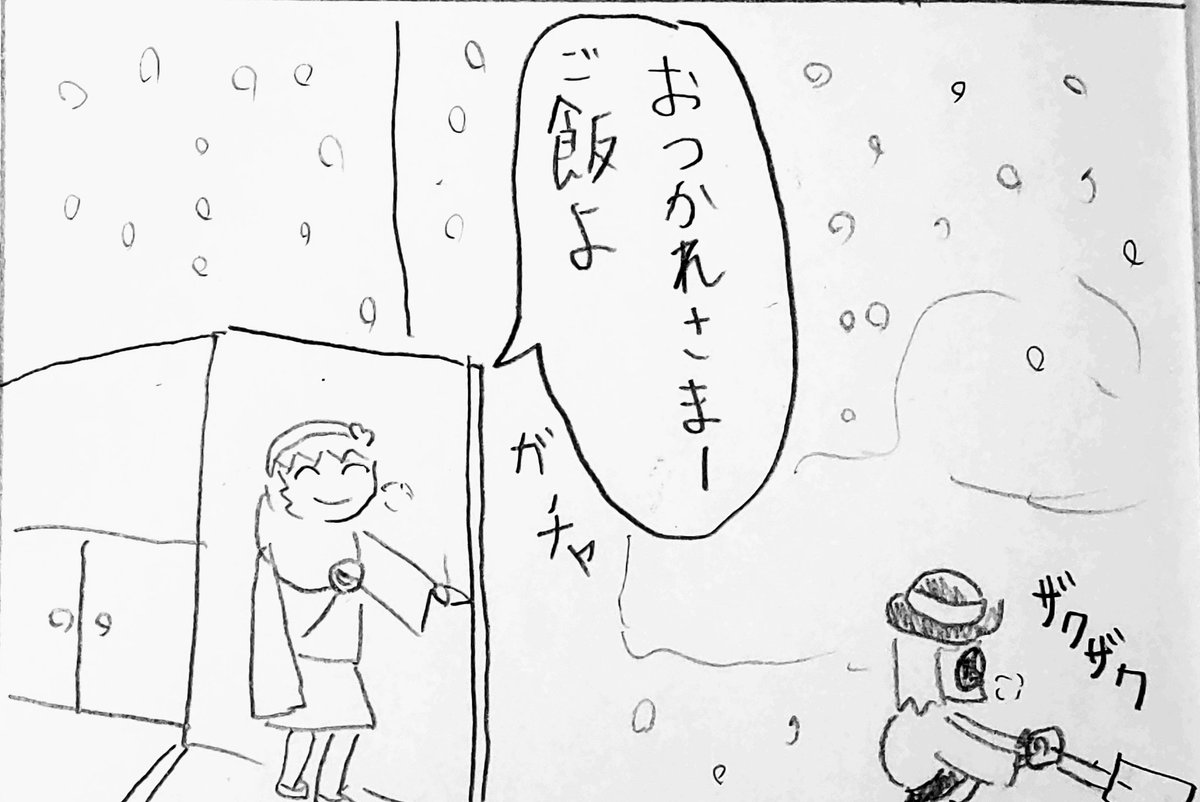 おつかれさまー
ご飯よ
ガチャ
ザクザク